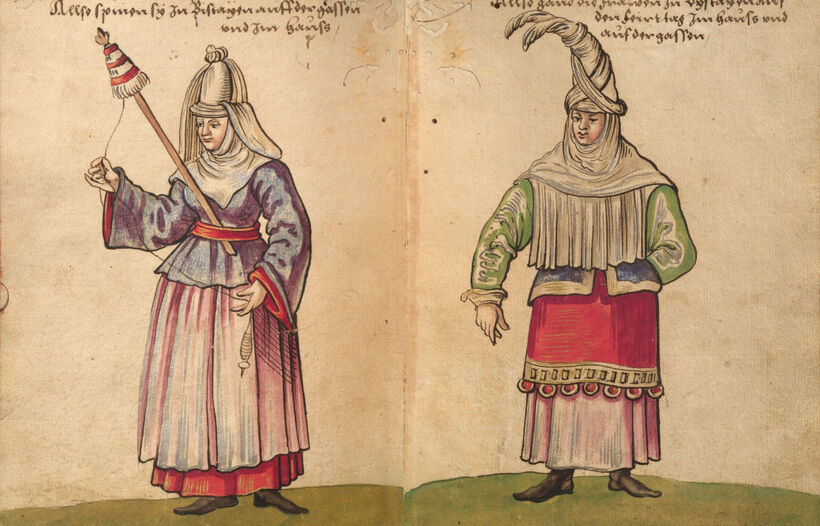 Allso spinen sy In Bistagen auff der gassen
vnd Im hauss,
Allso gand die frawen In Bystagen auf
den feirttag Im hauss vnd
auf der gassen,